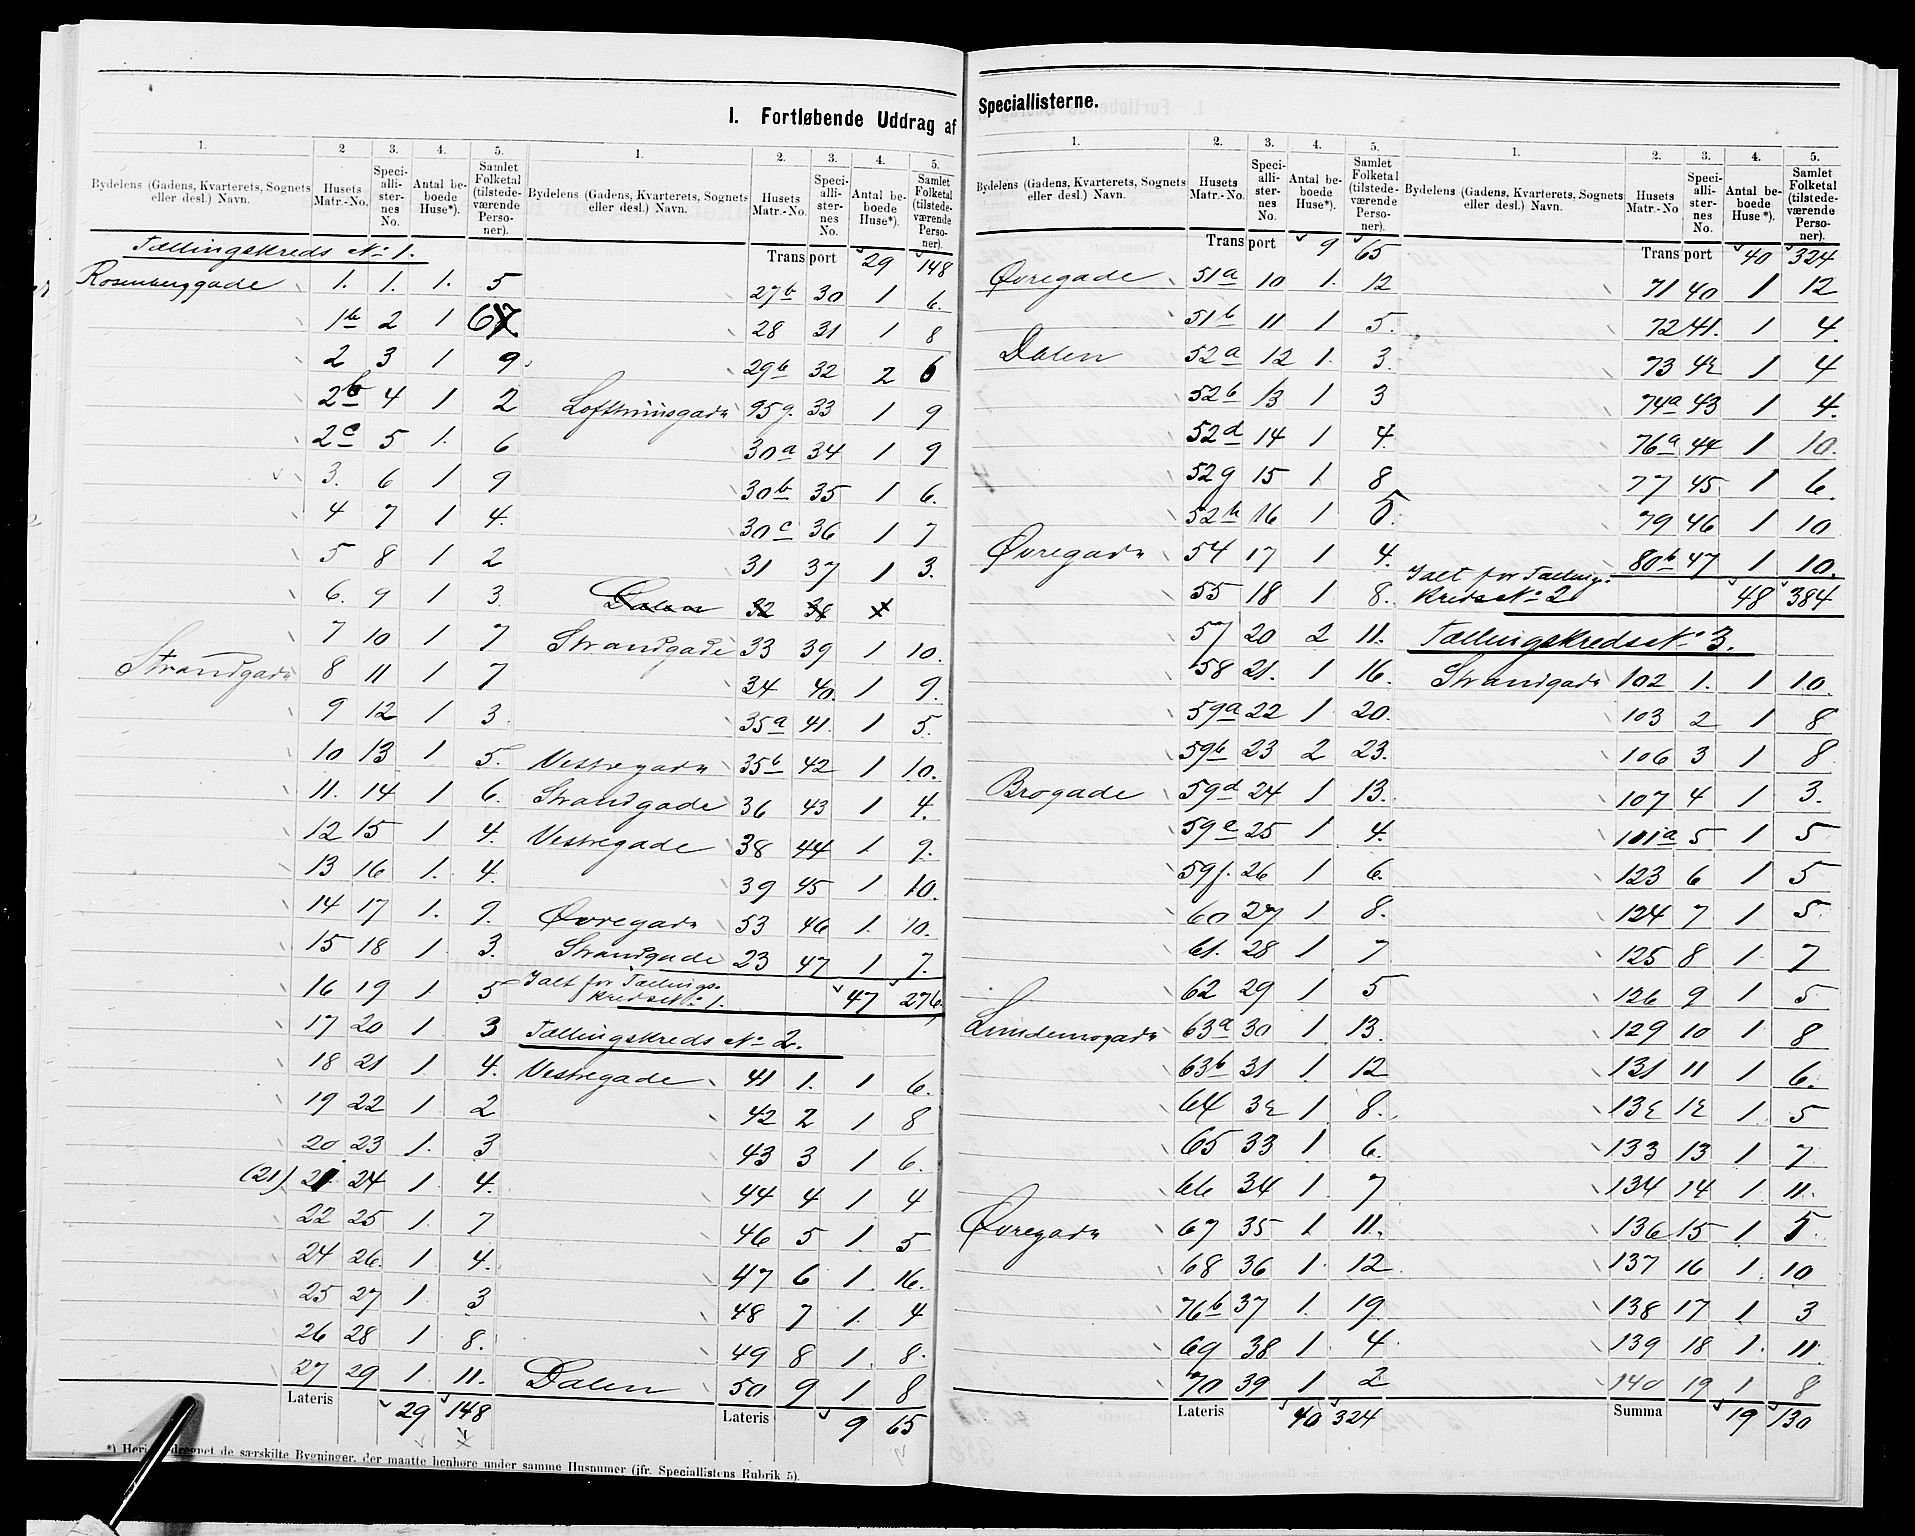 I. Fortløbende Uddrag af Speciallisterne.
1. 2 3. 4. 5. 1. 2. 3. 4. 5.
Bydelens (Gadens, Kvarterets, Sognets eller desl.) Navn. Husets Matr.-No. Speciallisternes No. Antal beboede Huse*). Samlet Folketal (tilstedeværende Personer). Bydelens (Gadens, Kvarterets, Sognets eller desl.) Navn. Husets Matr.-No. Speciallisternes No. Antal beboede Huse*). Samlet Folketal (tilstedeværende Personer).
Tællingskreds No 1.
Rosenberggade 1. 1. 1. 5
1b 2 1
2 3 1 9
2b 4 1 2
2c 5 1. 6
3. 6 1 9
4 7 1 4.
5 8 1 2
6. 9 1 3
7 10 1 7
Strandgade 8 11 1 7
9 12 1 3.
10 13 1 5.
11. 14 1 6.
12 15 1 4.
13 16 1. 4.
14 17 1. 9.
15 18 1 3.
16 19 1 5
17 20 1 3
18 21 1. 4.
19 22 1. 2
20 23 1. 3
(21) 21 24 1 4.
22 25 1. 7
24 26. 1 4.
25 27 1. 3
26 28 1 8.
27 29 1 11.
Lateris 29 148
Transport 29 148
27b 30 1 6.
28 31 1 8
29b 32 2 6
95g. 33 1 9
30a 34 1 9
30b 35 1 6.
30c 36 1 7
31 37 1 3.
Dalen 32 38 1
Strandgade 33 39 1 10.
34 40. 1 9.
35a 41. 1 5.
Vestregade 35b 42 1 10.
Strandgade 36 43 1 4.
Vestregade 38 44 1. 9.
39 45 1. 10.
Øvregade 53 46 1. 10.
Strandgade 23 47 1 7.
Ialt for Tællings-
kreds No 1. 47 276
Tællingskreds No 2.
Vestregade 41 1. 1 6.
42 2 1 8
43 3 1 6.
44 4 1 4
46 5 1. 5
47 6 1. 16.
48 7 1. 4
49 8 1. 8.
Dalen 50 9 1 8
Lateris 9 65
*) Heri de særskilte Bygninger, der maatte henhøre under samme Husnumer (jfr. Speciallistens Rubrik 5).
1. 2. 3. 4. 5. 1. 2. 3. 4. 5.
Bydelens (Gadens, Kvarterets, Sognets eller desl.) Navn. Husets Matr.-No. Speciallisternes No. Antal beboede Huse*). Samlet Folketal (tilstedeværende Personer). Bydelens (Gadens, Kvarterets, Sognets eller desl.) Navn. Husets Matr.-No. Speciallisternes No. Antal beboede Huse*). Samlet Folketal (tilstedeværende Personer).
Transport 9 65
Øvregade 51a 10 1. 12
51b 11 1 5.
Dalen 52a 12 1. 3.
52b 13 1 3
52d 14 1 4.
52g 15 1 8
52h 16 1
Øvregade 54 17 1 4.
55 18 1 8.
57 20 2 11.
58 21. 1 16.
59a 22 1 20.
59b 23 2 23.
Brogade 59d 24 1 13.
59e 25 1 4.
59f. 26 1 6.
60 27 1 8.
61. 28 1 7
62 29 1 5
63a 30 1. 13.
63b 31 1. 12
64 32 1 8.
65 33 1. 6.
66 34 1. 7
Øvregade 67 35 1 11.
68 36 1. 12
76b 37 1. 19.
69 38 1. 4.
70 39 1 2
Lateris 40 324
Transport 40 324
71 40 1 12
72 41. 1 4.
73 42 1 4
74a 43 1 4.
76a 44 1 10.
77 45 1 6.
79 46 1 10
80b 47 1 10.
Ialt for Tællings-
kreds No 2 48 384
Tællingskreds No 3.
Strandgade 102 1. 1 10.
103 2 1 8
106 3 1 8
107 4 1 3.
101a 5 1 5
123 6 1 5
124 7 1 5
125 8 1 7
126 9 1 5
129 10 1 8
131 11 1 6.
132 12 1. 5
133 13 1. 7
134 14 1. 11.
136 15 1. 5
137 16 1. 10
138 17 1 3
139 18 1. 11.
140 19 1 8
Summa 19 130